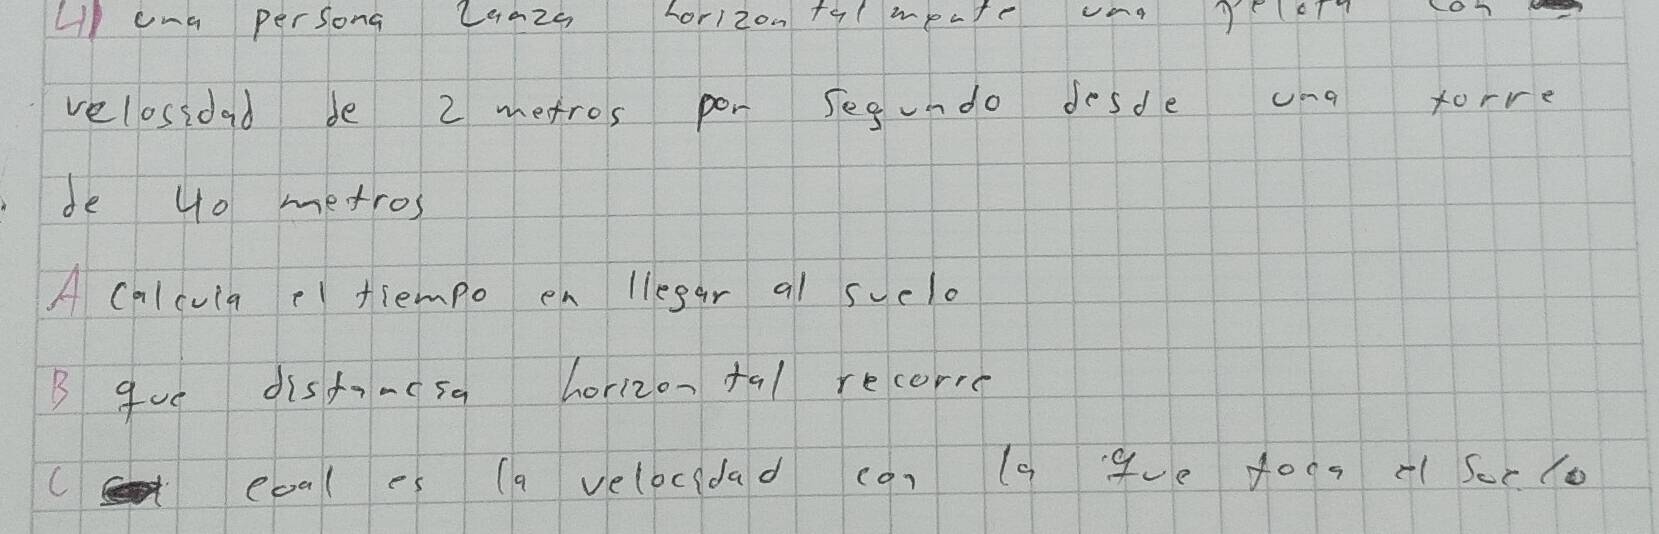 4) una persona Lanza horizontalmente una pelota con
velosidad de 2 metros por segundo desde una torre
de 40 metros
A calcula el tiempo en llegar al suelo
B que distansia horizontal recorre
C cual es la velocidad con la que toca el suelo